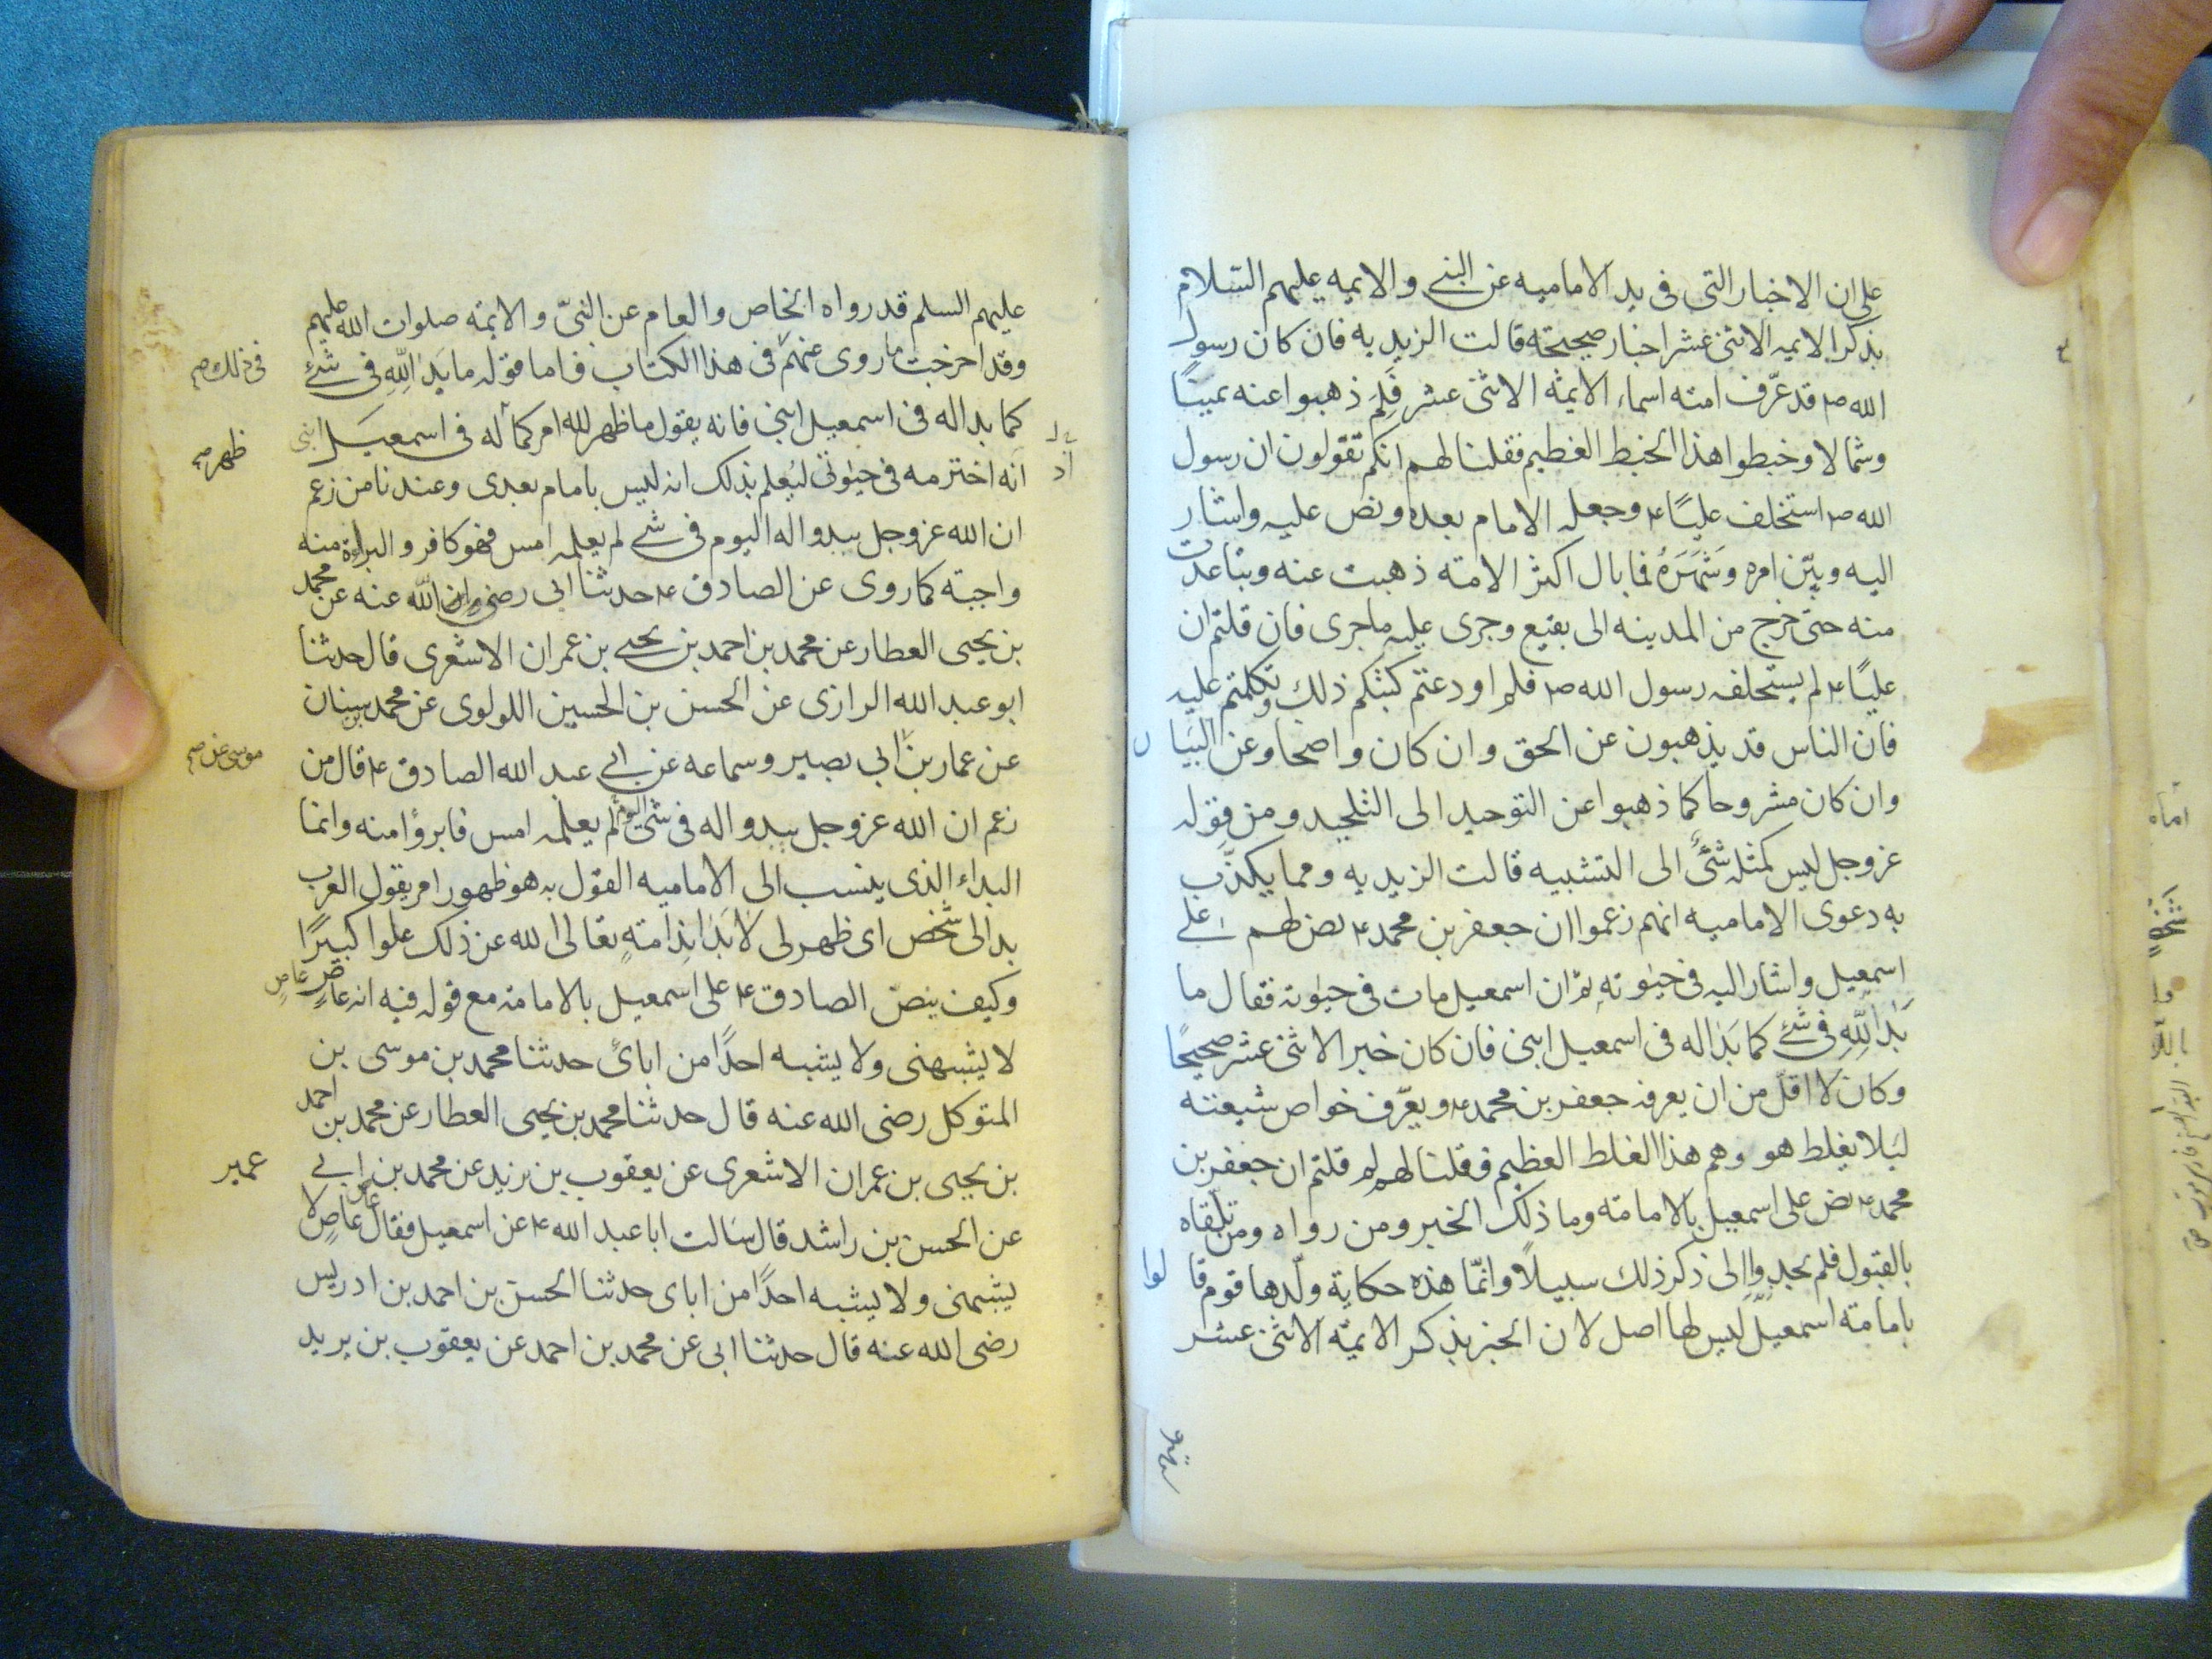 على ان الاخبار التى فى يد الاماميه عن النبى والايمه عليهم السلام
بذكر الايمه الاثنى عشر اخبار صحيحة قالت الزيديه فان كان رسول
الله ص قد عرّف امته اسماء الايمه الاثنى عشر فلم ذهبوا عنه يمينًا
وشمالا وخبطوا هذا الخبط العظيم فقلنا لهم انكم تقولون ان رسول
الله ص استخلف عليًا ع وجعله الامام بعده ونص عليه واشار
اليه وبيّن امره وشهره فما بال اكثر الامة ذهبت عنه وتباعدت
منه حتى خرج من المدينه الى ينبع وجرى عليه ماجرى فان قلتم ان
عليًا ع لم يستخلفه رسول الله ص فلم اودعتم كتبكم ذلك وتكلمتم عليه
فان الناس قد يذهبون عن الحق وان كان واضحا وعن البيان
وان كان مشروحا كما ذهبوا عن التوحيد الى التلحيد ومن قوله
عز وجل ليس كمثله شئ الى التشبيه قالت الزيديه ومما يكذّب
به دعوى الاماميه انهم زعموا ان جعفر بن محمد ع نص لهم على
اسمعيل واشار اليه فى حيوته ثم ان اسمعيل مات فى حيوته فقال ما
بدا لله فى شئ كما بدا له فى اسمعيل ابنى فان كان خبر الاثنى عشر صحيحًا
وكان لا اقل من ان يعرفه جعفر بن محمد ع ويعرّف خواص شيعته
ليلا يغلط هو وهم هذا الغلط العظيم فقلنا لهم لم قلتم ان جعفر بن
محمد ع نص على اسمعيل بالامامة وما ذلك الخبر ومن رواه ومن تلقاه
بالقبول فلم يجدوا الى ذكر ذلك سبيلاً وانّما هذه حكاية ولّدها قوم قالوا
بامامة اسمعيل ليس لها اصل لان الخبر بذكر الايمّة الاثنى عشر
عليهم السلم قد رواه الخاص والعام عن النبىّ والايمّة صلوات الله عليهم
وقد اخرجت ما روى عنهم فى هذا الكتاب فاما قوله ما بدا لله فى شئ
فى ذلك صح
كما بدا له فى اسمعيل ابنى فانه يقول ما ظهر لله امر كما له فى اسمعيل ابنى
ظهر صح
انه اخترمه فى حيوتى ليُعلم بذلك انه ليس بامام بعدى وعندنا من زعم
ان الله عز وجل يبدو اله اليوم فى شئ لم يعلمه امس فهو كافر والبراءة منه
واجبة كما روى عن الصادق ع حدثنا ابى رضوان الله عنه عن محمد
بن يحيى العطار عن محمد بن احمد بن يحيى بن عمران الاشعرى قال حدثنا
ابو عبد الله الرازى عن الحسن بن الحسين اللولوى عن محمد بن سنان
عن عمار بن ابى بصير وسماعه عن ابى عبد الله الصادق ع قال من
موسى عن صح
زعم ان الله عز وجل يبدو اله فى شئ اليوم لم يعلمه امس فابرؤا منه وانما
البداء الذى ينسب الى الاماميه القول به هو ظهور امر يقول العرب
بدا لى شخص اى ظهر لى لا بدا نذامة تعالى الله عن ذلك علوا كبيرًا
وكيف ينصّ الصادق ع على اسمعيل بالامامة مع قوله فيه انه عاصٍ عاصٍ
لا يشبهنى ولا يشبه احدًا من اباىٔ حدثنا محمد بن موسى بن
المتوكل رضى الله عنه قال حدثنا محمد بن يحيى العطار عن محمد بن احمد
بن يحيى بن عمران الاشعرى عن يعقوب بن يزيد عن محمد بن ابى
عمير
عن الحسن بن راشد قال سالت ابا عبد الله ع عن اسمعيل فقال عاصٍ عاصٍ لا
يشبهنى ولا يشبه احدًا من اباى حدثنا الحسن بن احمد بن ادريس
رضى الله عنه قال حدثنا ابى عن محمد بن احمد عن يعقوب بن يزيد